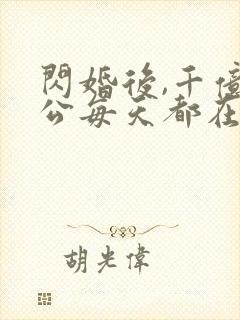 閃婚後,千億
公每天都在
胡光偉